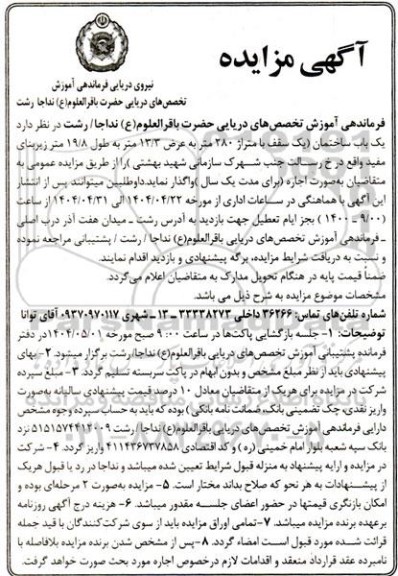 آگهی مزایده
نیروی دریایی فرماندهی آموزش
تخصص‌های دریایی حضرت باقرالعلوم(ع) نداجا رشت
فرماندهی آموزش تخصص‌های دریایی حضرت باقرالعلوم(ع) نداجا/ رشت در نظر دارد
یک باب ساختمان (یک سقف با متراژ ۲۸۰ متر به عرض ۱۳/۳ متر به طول ۱۹/۸ متر زیربنای
مفید واقع در خ رسالت جنب شهرک سازمانی شهید بهشتی )را از طریق مزایده عمومی به
متقاضیان به‌صورت اجاره (برای مدت یک سال )واگذار نماید.داوطلبین میتوانند پس از انتشار
این آگهی با هماهنگی در ساعات اداری از مورخه ۱۴۰۴/۰۴/۲۲ الی ۱۴۰۴/۰۴/۳۱ از ساعت
(۹/۰۰ - ۱۴۰۰ ) بجز ایام تعطیل جهت بازدید به آدرس رشت ـ میدان هفت آذر درب اصلی
ـ فرماندهی آموزش تخصص‌های دریایی باقرالعلوم(ع) نداجا / رشت / پشتیبانی مراجعه نموده
و نسبت به دریافت شرایط مزایده، برگه پیشنهادی و بازدید اقدام نمایند.
ضمناً قیمت پایه در هنگام تحویل مدارک به متقاضیان اعلام می‌گردد.
مشخصات موضوع مزایده به شرح ذیل می باشد.
شماره تلفن‌های تماس: ۳۶۲۶۶ داخلی ۳۳۳۳۸۲۷۳ ـ ۱۳ ـ شهری ۰۹۳۷۰۹۷۰۱۱۷ آقای توانا
توضیحات: ۱- جلسه بازگشایی پاکت‌ها در ساعت ۹:۰۰ صبح مورخه ۱۴۰۴/۰۵/۰۱ در دفتر
فرمانده پشتیبانی آموزش تخصص‌های دریایی باقرالعلوم(ع) نداجا/رشت برگزار میشود. ۲-بهای
پیشنهادی باید از نظر مبلغ مشخص و بدون ابهام در پاکت سربسته تسلیم گردد. ۳- مبلغ سپرده
شرکت در مزایده برای هریک از متقاضیان معادل ۱۰ درصد قیمت پیشنهادی سالیانه به‌صورت
واریز نقدی، چک تضمینی بانکی، ضمانت نامه بانکی) بوده که باید به حساب سپرده وجوه مشخص
دارایی فرماندهی آموزش تخصص‌های دریایی باقرالعلوم(ع) نداجا/رشت ۵۱۵۱۵۷۴۴۱۲۰۰۹ نزد
بانک سپه شعبه بلوار امام خمینی (ره) و کد اقتصادی ۴۱۱۴۳۶۷۳۷۸۵۸ واریز گردد. ۴- شرکت
در مزایده و ارایه پیشنهاد به منزله قبول شرایط تعیین شده میباشد و نداجا در رد یا قبول هریک
از پیشنهادات به هر نحو که صلاح بداند مختار است. ۵- مزایده به‌صورت ۲ مرحله‌ای بوده و
امکان بازنگری قیمتها در حضور اعضای جلسه مقدور میباشد. ۶- هزینه درج آگهی روزنامه
برعهده برنده مزایده میباشد. ۷-تمامی اوراق مزایده باید از سوی شرکت‌کنندگان با قید جمله
قرائت شده مورد قبول است امضاء گردد. ۸-پس از مشخص شدن برنده مزایده بلافاصله با
نامبرده عقد قرارداد منعقد و اقدامات لازم درخصوص اجاره مورد بحث صورت خواهد گرفت.